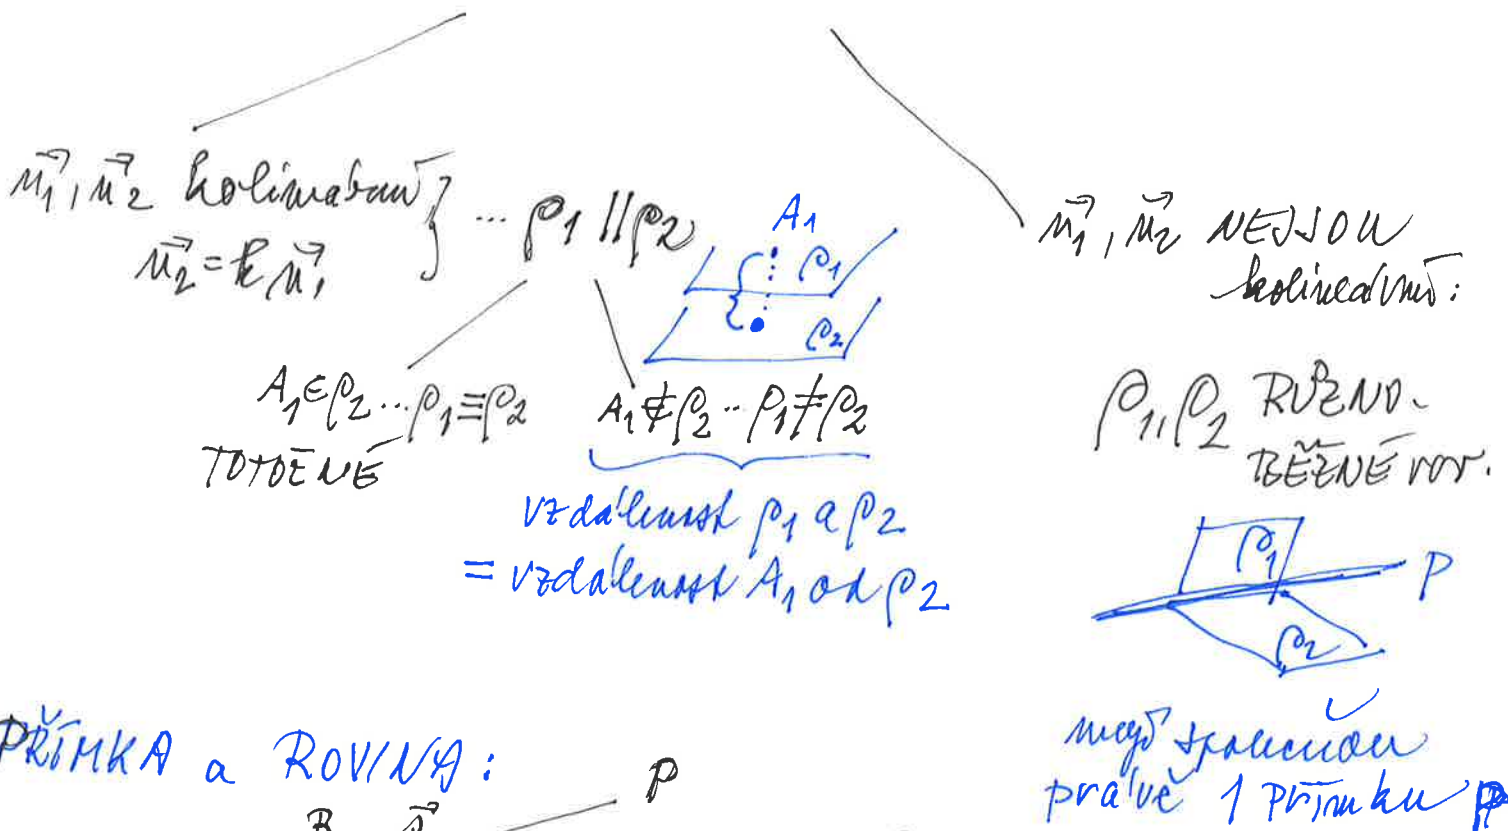 n⃗₁, n⃗₂ kolineární } ... ρ₁ || ρ₂
n⃗₂ = k n⃗₁
A₁
ρ₁
ρ₂
A₁ ∈ ρ₂ ... ρ₁ ≡ ρ₂
TOTOŽNÉ
A₁ ∉ ρ₂ ... ρ₁ ≢ ρ₂
vzdálenost ρ₁ a ρ₂
= vzdálenost A₁ od ρ₂
n⃗₁, n⃗₂ NEJSOU
kolineární:
ρ₁, ρ₂ RŮZNO-
BĚŽNÉ rov.
ρ₁
P
ρ₂
mají společnou
právě 1 přímku P
PŘÍMKA a ROVINA:
P